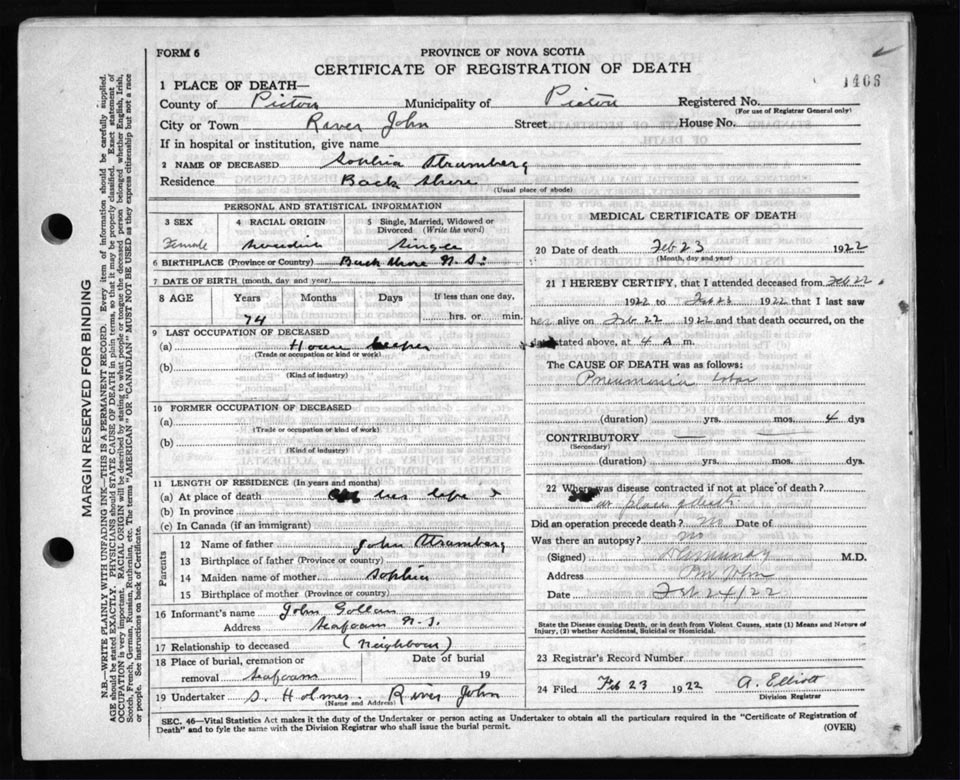 FORM 6
PROVINCE OF NOVA SCOTIA
CERTIFICATE OF REGISTRATION OF DEATH
1406
1 PLACE OF DEATH—
County of Pictou Municipality of Pictou Registered No.
(For use of Registrar General only)
City or Town River John Street House No.
If in hospital or institution, give name
2 NAME OF DECEASED Sophia Stramberg
Residence Back Shore
(Usual place of abode)
PERSONAL AND STATISTICAL INFORMATION
3 SEX 4 RACIAL ORIGIN 5 Single, Married, Widowed or Divorced (Write the word)
Female Swedish Single
6 BIRTHPLACE (Province or Country) Back Shore N.S.
7 DATE OF BIRTH (month, day and year)
8 AGE Years Months Days If less than one day,
74 hrs. or min.
9 LAST OCCUPATION OF DECEASED
(a) House keeper
(Trade or occupation or kind or work)
(b)
(Kind of industry)
10 FORMER OCCUPATION OF DECEASED
(a)
(Trade or occupation or kind of work)
(b)
(Kind of industry)
11 LENGTH OF RESIDENCE (In years and months)
(a) At place of death her life
(b) In province
(c) In Canada (if an immigrant)
Parents
12 Name of father John Stramberg
13 Birthplace of father (Province or country)
14 Maiden name of mother Sophia
15 Birthplace of mother (Province or country)
16 Informant's name John Gollan
Address Seafoam N.S.
17 Relationship to deceased (Neighbour)
18 Place of burial, cremation or removal Seafoam Date of burial 19
19 Undertaker S. Holmes River John
(Name and Address)
MEDICAL CERTIFICATE OF DEATH
20 Date of death Feb 23 1922
(Month, day and year)
21 I HEREBY CERTIFY, that I attended deceased from Feb 22
1922 to Feb 23 1922 that I last saw
her alive on Feb 22 1922 and that death occurred, on the
date stated above, at 4 A m.
The CAUSE OF DEATH was as follows:
Pneumonia lobar
(duration) yrs. mos. 4 dys
CONTRIBUTORY
(Secondary)
(duration) yrs. mos. dys.
22 Where was disease contracted if not at place of death?
at place of death
Did an operation precede death? No Date of
Was there an autopsy? no
(Signed) M.D.
Address
Date Feb 24/22
State the Disease causing Death, or in death from Violent Causes, state (1) Means and Nature of
Injury, (2) whether Accidental, Suicidal or Homicidal.
23 Registrar's Record Number
24 Filed Feb 23 1922 A. Elliott
Division Registrar
SEC. 46—Vital Statistics Act makes it the duty of the Undertaker or person acting as Undertaker to obtain all the particulars required in the "Certificate of Registration of
Death" and to fyle the same with the Division Registrar who shall issue the burial permit.
(OVER)
MARGIN RESERVED FOR BINDING
N.B.—WRITE PLAINLY WITH UNFADING INK—THIS IS A PERMANENT RECORD. Every item of information should be carefully supplied.
AGE should be stated EXACTLY. PHYSICIANS should STATE CAUSE OF DEATH in plain terms, so that it may be properly classified. Exact statement of
OCCUPATION is very important. RACIAL ORIGIN will be described by stating to what people or tongue the deceased person belonged whether English, Irish,
Scotch, French, German, Russian, Ruthenian, etc. The terms "AMERICAN" OR "CANADIAN" MUST NOT BE USED as they express citizenship but not a race
or people. See instructions on back of Certificate.